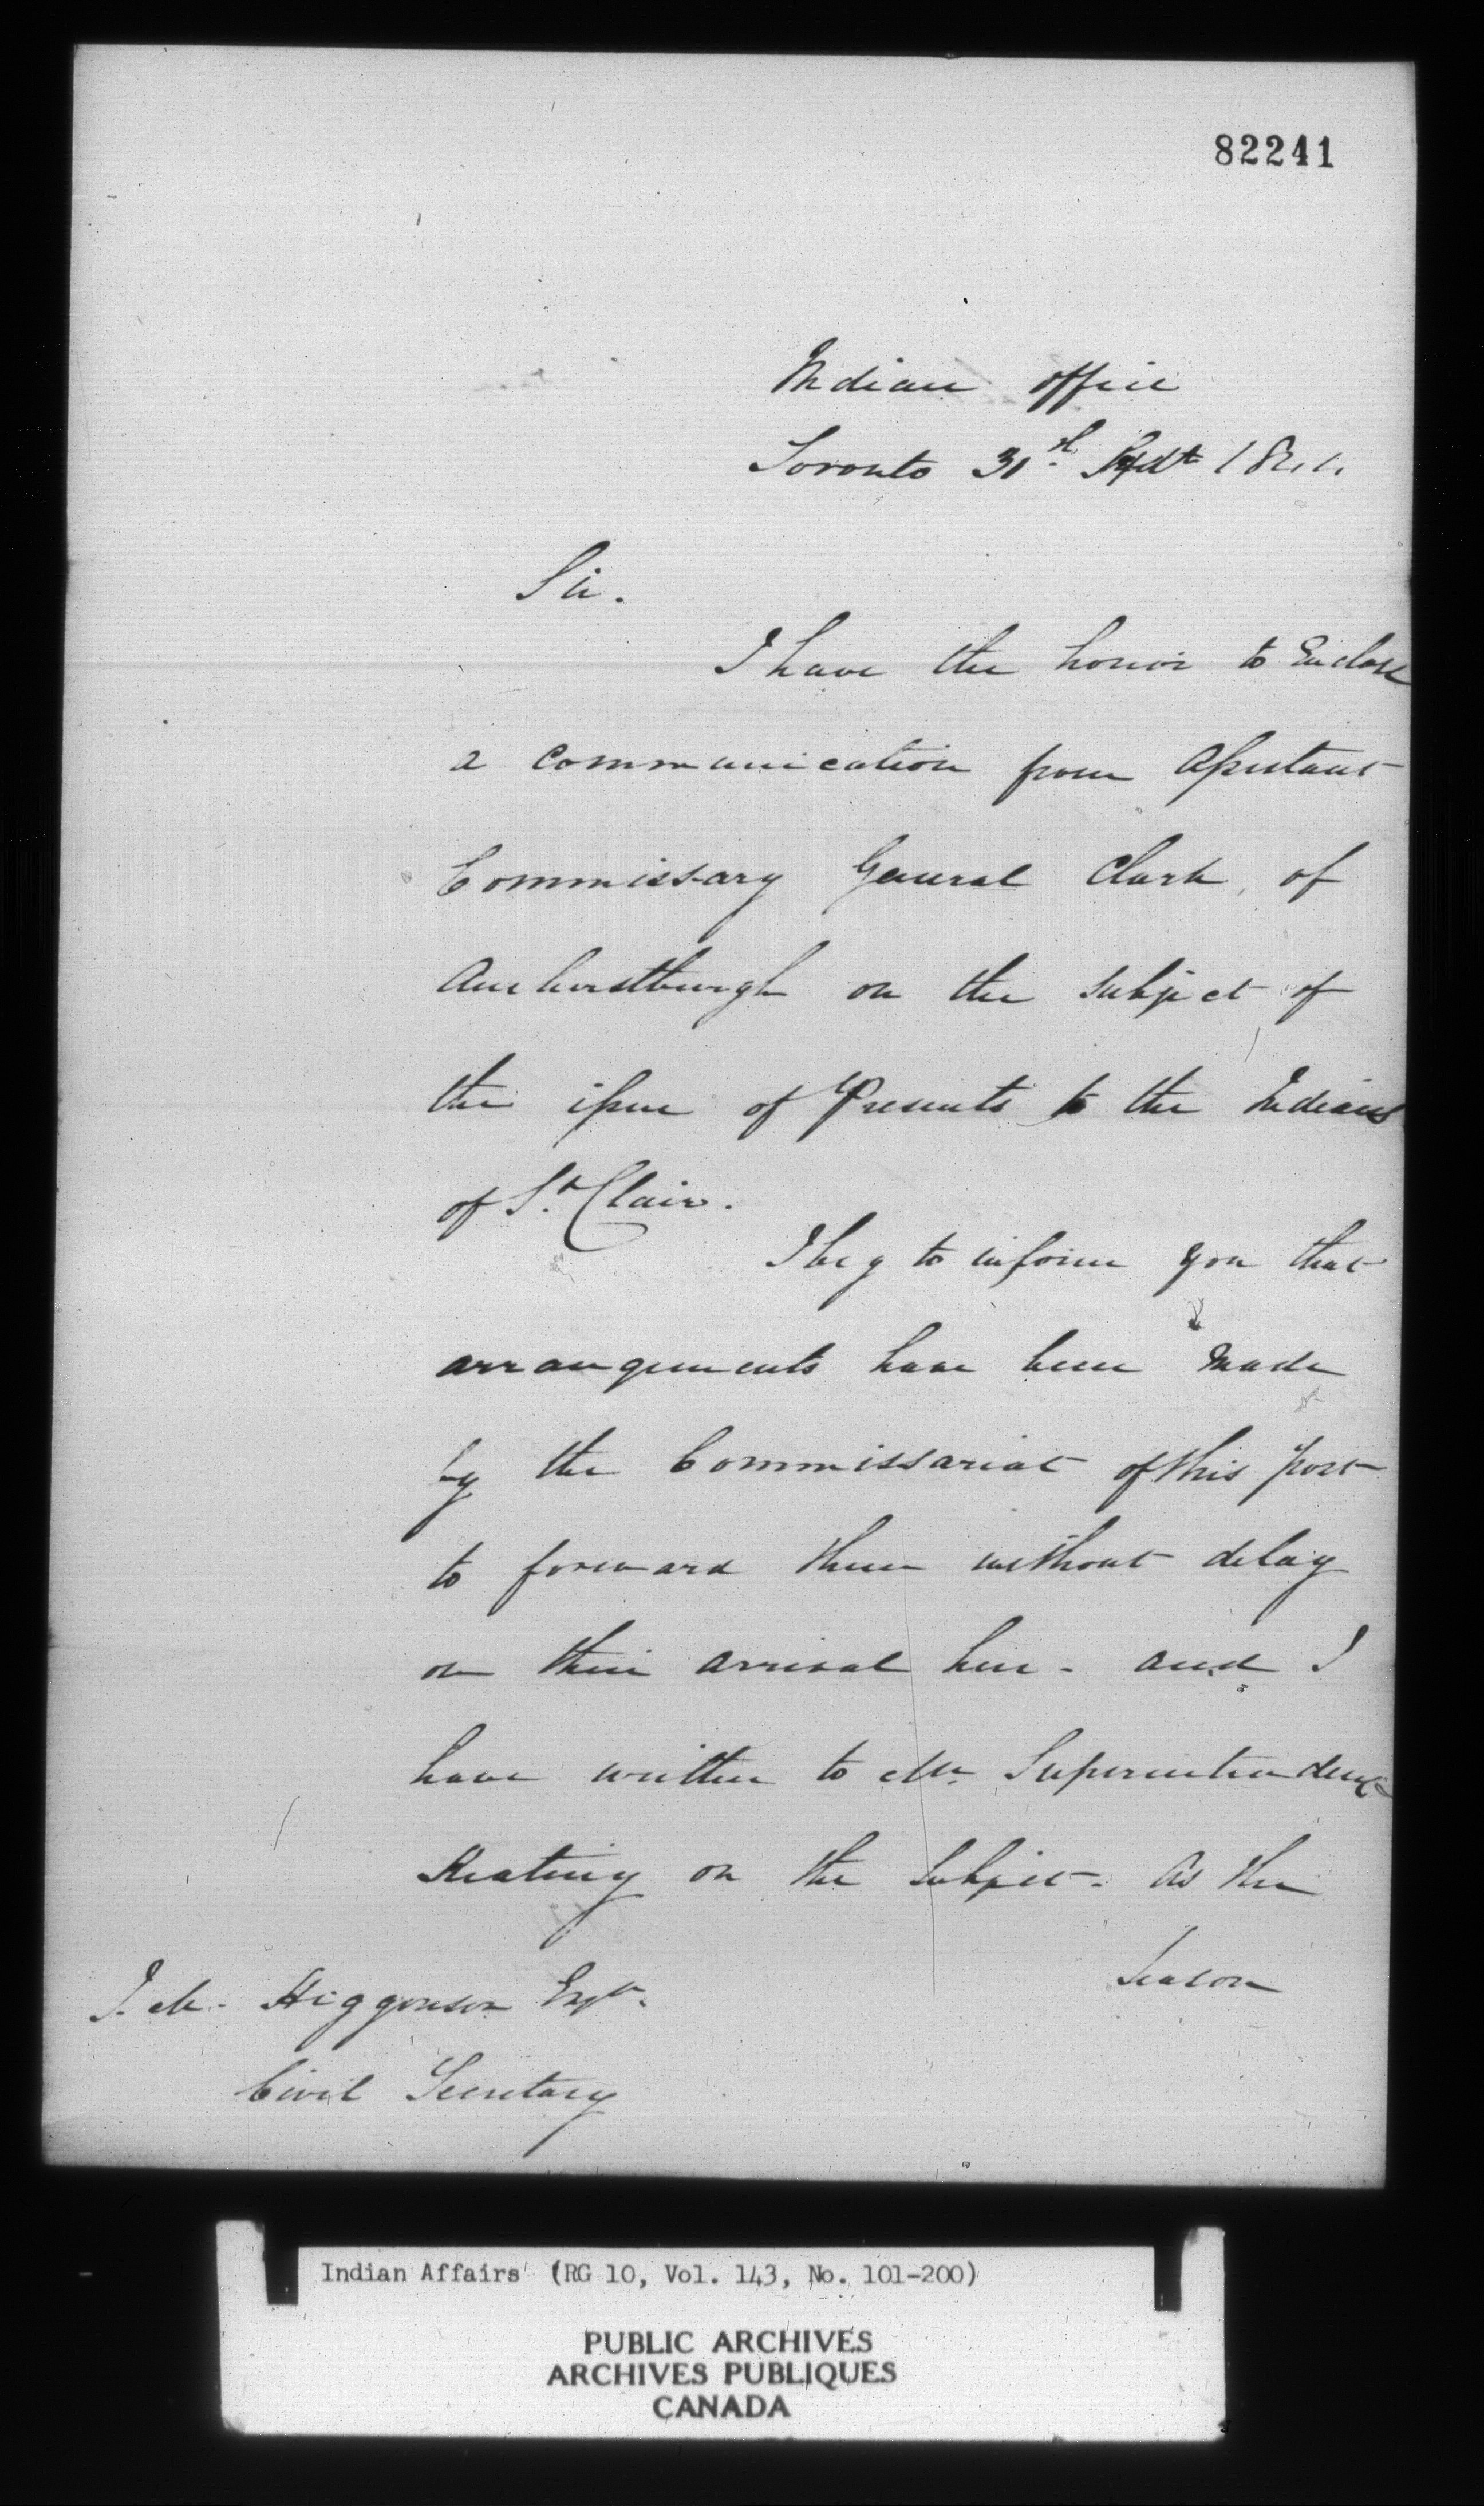 82241
Indian Office
Toronto 30th Sept 1844
Sir.
I have the honor to Enclose
a Communication from Assistant
Commissary General Clark, of
Amherstburgh on the subject of
the issue of Presents to the Indians
of St. Clair.
I beg to inform you that
arrangements have been Made
by the Commissariat of this post
to forward them without delay
on their arrival here - and I
have written to Mr. Superintendent
Keating on the Subject. As the
Season
J. M. Higginson Esqr.
Civil Secretary
Indian Affairs (RG 10, Vol. 143, No. 101-200)
PUBLIC ARCHIVES
ARCHIVES PUBLIQUES
CANADA